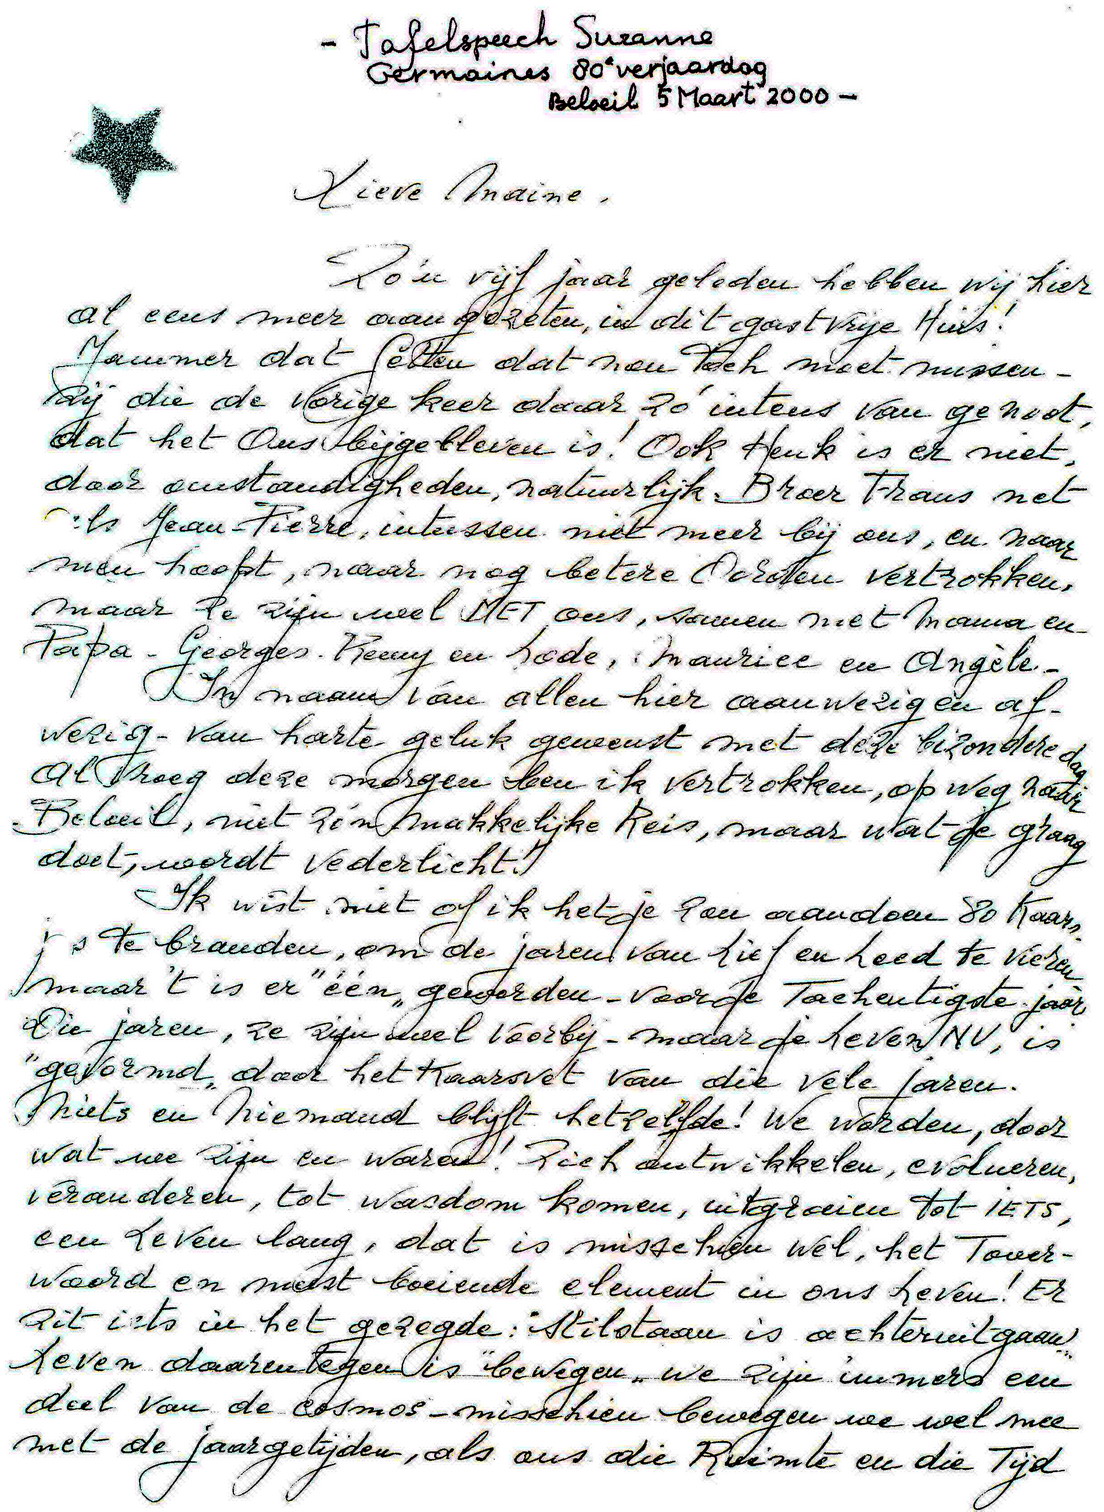 - Tafelspeech Suzanne
Germaines 80e verjaardag
Beloeil 5 Maart 2000 -
Lieve Maine,
Zo'n vijf jaar geleden hebben wij hier
al eens meer aangezeten, in dit gastvrije Huis!
Jammer dat Cotten dat nou toch moet missen -
Zij die de vorige keer daar zo intens van genoot,
dat het Ons bijgebleven is! Ook Henk is er niet,
door omstandigheden, natuurlijk. Broer Frans net
als Jean-Pierre, intussen niet meer bij ons, en naar
men hoopt, naar nog betere Oorden vertrokken,
maar ze zijn wel MET ons, samen met Mama en
Papa - Georges - Remy en Lode, Maurice en Angèle -
In naam van allen hier aanwezig en af-
wezig - van harte geluk gewenst met deze bizondere dag
Al vroeg deze morgen ben ik vertrokken, op weg naar
Beloeil, niet zo'n makkelijke Reis, maar wat je graag
doet, wordt vederlicht!
Ik wist niet of ik het je zou aandoen 80 Kaars-
jes te branden, om de jaren van Lief en Leed te vieren
maar 't is er "één" geworden - voor je Tachentigste jaar
Die jaren, ze zijn wel voorbij - maar je Leven NU, is
"gevormd" door het Kaarsvet van die vele jaren.
Niets en Niemand blijft hetzelfde! We worden, door
wat we zijn en waren! Zich ontwikkelen, evolueren,
veranderen, tot wasdom komen, uitgroeien tot IETS,
een Leven lang, dat is misschien wel, het Tover-
woord en meest boeiende element in ons Leven! Er
zit iets in het gezegde: "Stilstaan is achteruitgaan"
Leven daarentegen is "bewegen" we zijn immers een
deel van de cosmos - misschien bewegen we wel mee
met de jaargetijden, als ons die Ruimte en die Tijd